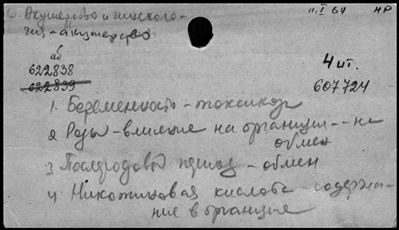 Акушерство и гинеколо-
гия - акушерство
II.I 64 НР
аб
622838
622839
4 ит.
607724
1. Беременность - токсикоз
2. Роды - влияние на организм - на
обмен
3. Послеродовой период - обмен
4. Никотиновая кислота - содержа-
ние в организме